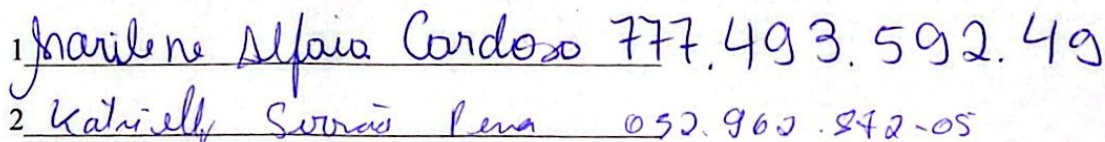 1 Marilene Alfaia Cardoso 777.493.592.49
2 Katrielly Serrão Pena 052.962.872-05